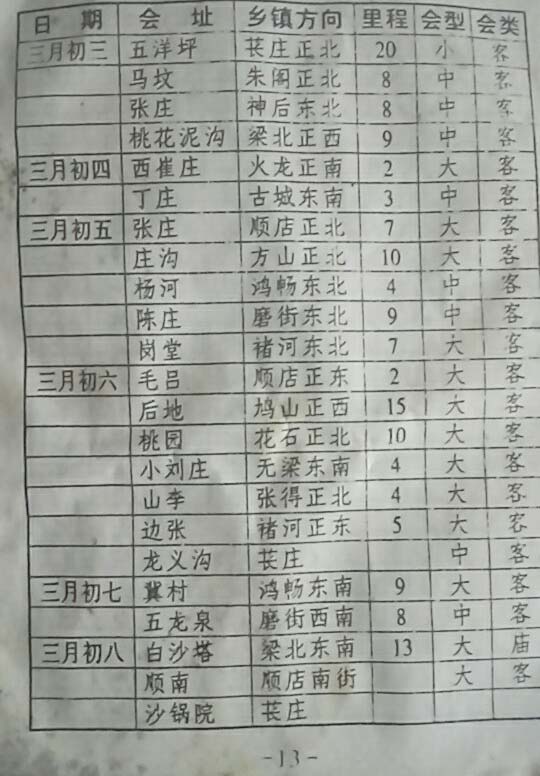 日 期 会 址 乡镇方向 里程 会型 会类
三月初三 五洋坪 苌庄正北 20 小 客
马坟 朱阁正北 8 中 客
张庄 神后东北 8 中 客
桃花泥沟 梁北正西 9 中 客
三月初四 西崔庄 火龙正南 2 大 客
丁庄 古城东南 3 中 客
三月初五 张庄 顺店正北 7 大 客
庄沟 方山正北 10 大 客
杨河 鸿畅东北 4 中 客
陈庄 磨街东北 9 中 客
岗堂 褚河东北 7 大 客
三月初六 毛吕 顺店正东 2 大 客
后地 鸠山正西 15 大 客
桃园 花石正北 10 大 客
小刘庄 无梁东南 4 大 客
山李 张得正北 4 大 客
边张 褚河正东 5 大 客
龙义沟 苌庄 中 客
三月初七 冀村 鸿畅东南 9 大 客
五龙泉 磨街西南 8 中 客
三月初八 白沙塔 梁北东南 13 大 庙
顺南 顺店南街 大 客
沙锅院 苌庄
-13-